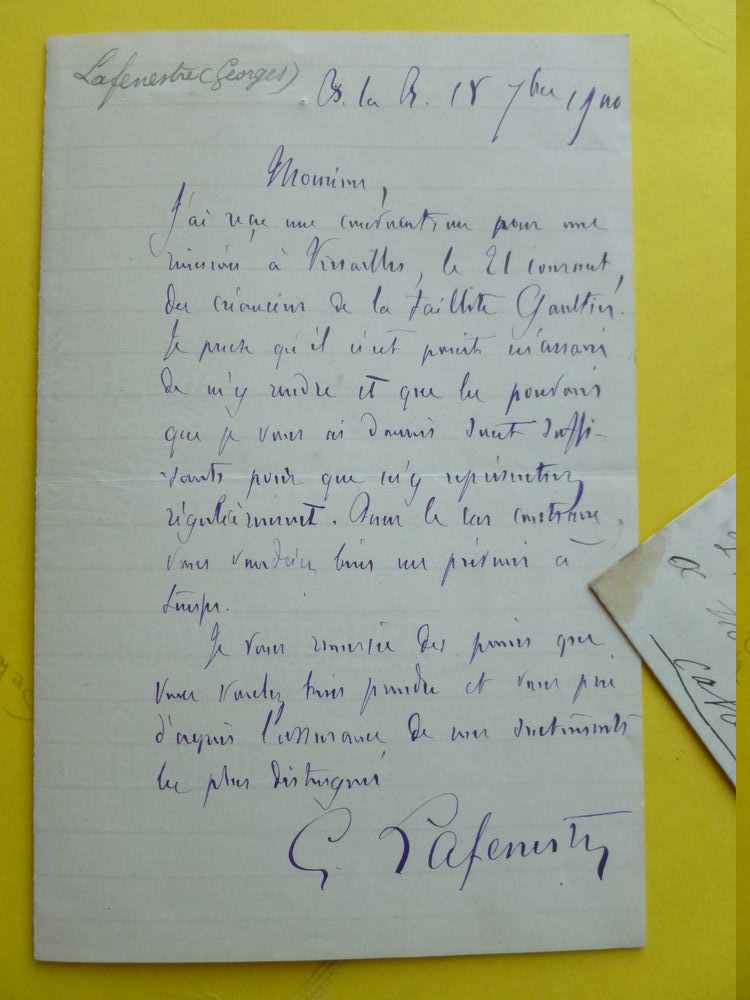 Lafenestre (Georges)
B. la R. 18 7bre 1900
Monsieur,
J'ai reçu une convocation pour une
réunion à Versailles, le 21 courant,
des créanciers de la faillite Gaultier.
Je pense qu'il n'est point nécessaire
de m'y rendre et que les pouvoirs
que je vous ai donnés sont suffi-
sants pour que m'y représentiez
régulièrement. Dans le cas contraire,
vous voudriez bien me prévenir à
temps.
Je vous remercie des peines que
vous voulez bien prendre et vous prie
d'agréer l'assurance de mes sentiments
les plus distingués
G. Lafenestre